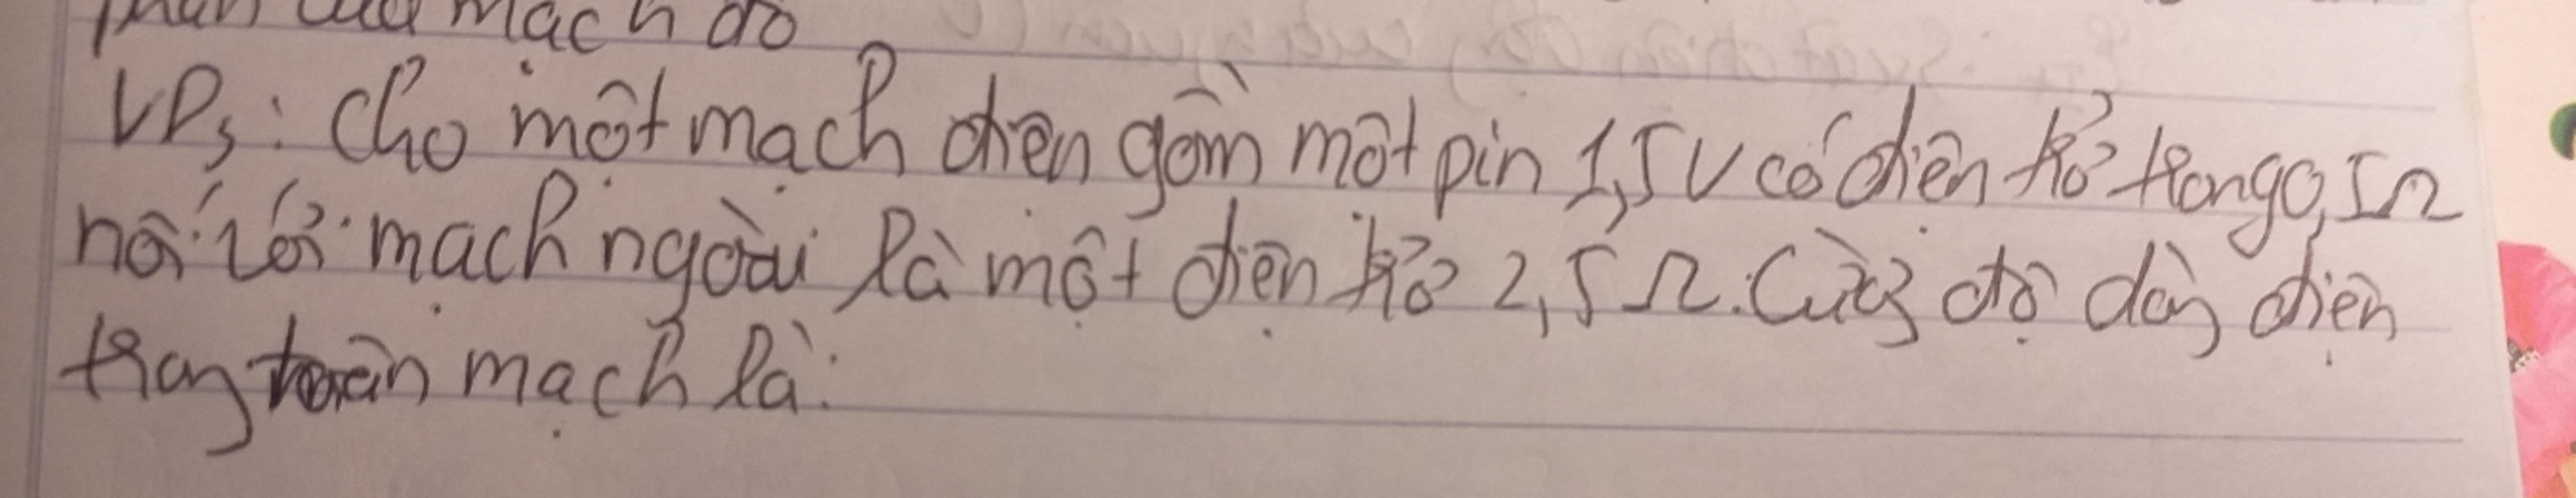 phần của mạch đó
VD3: Cho một mạch điện gồm một pin 1,5V có điện trở trong 0,5Ω
nối với mạch ngoài là một điện trở 2,5Ω. Cường độ dòng điện
trong toàn mạch là: